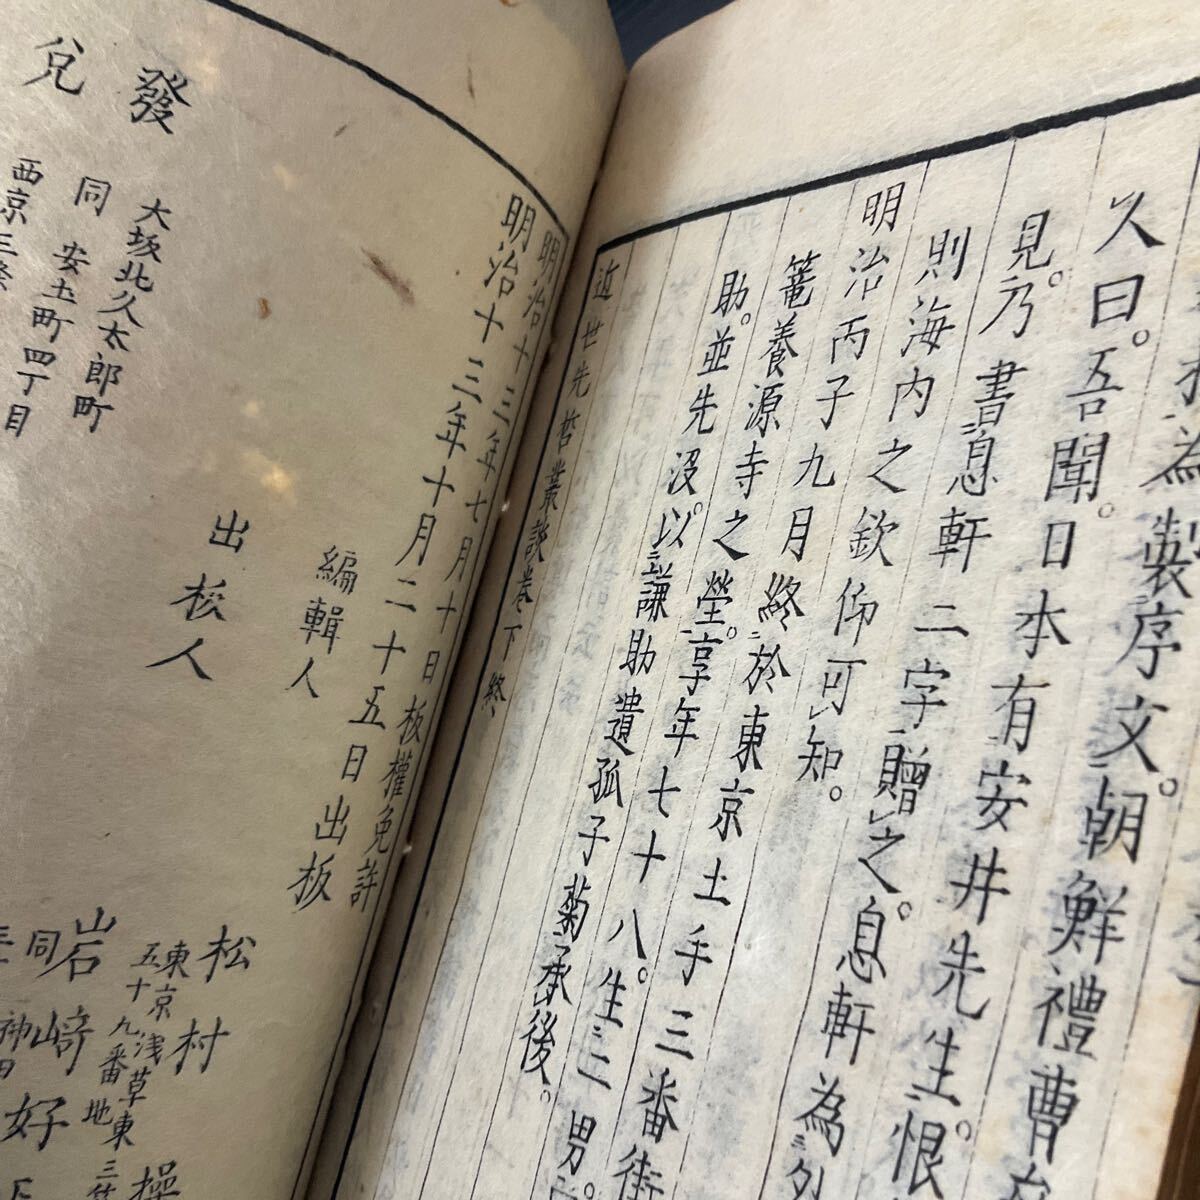 為製序文。朝鮮禮曹
久曰。吾聞。日本有安井先生。恨
見。乃書息軒二字贈之。息軒為外
則海内之欽仰可知。
明治丙子九月終於東京土手三番街
篭養源寺之塋。享年七十八。生二男。
助。並先沒。以謙助遺孤子菊承後。
近世先哲叢談巻下終
明治十三年七月十日板權免許
明治十三年十月二十五日出板
編輯人
松村操
東京浅草東三
五十九番地
出板人
岩﨑好
同
發兌
大坂北久太郎町
同安土町四丁目
西京三條